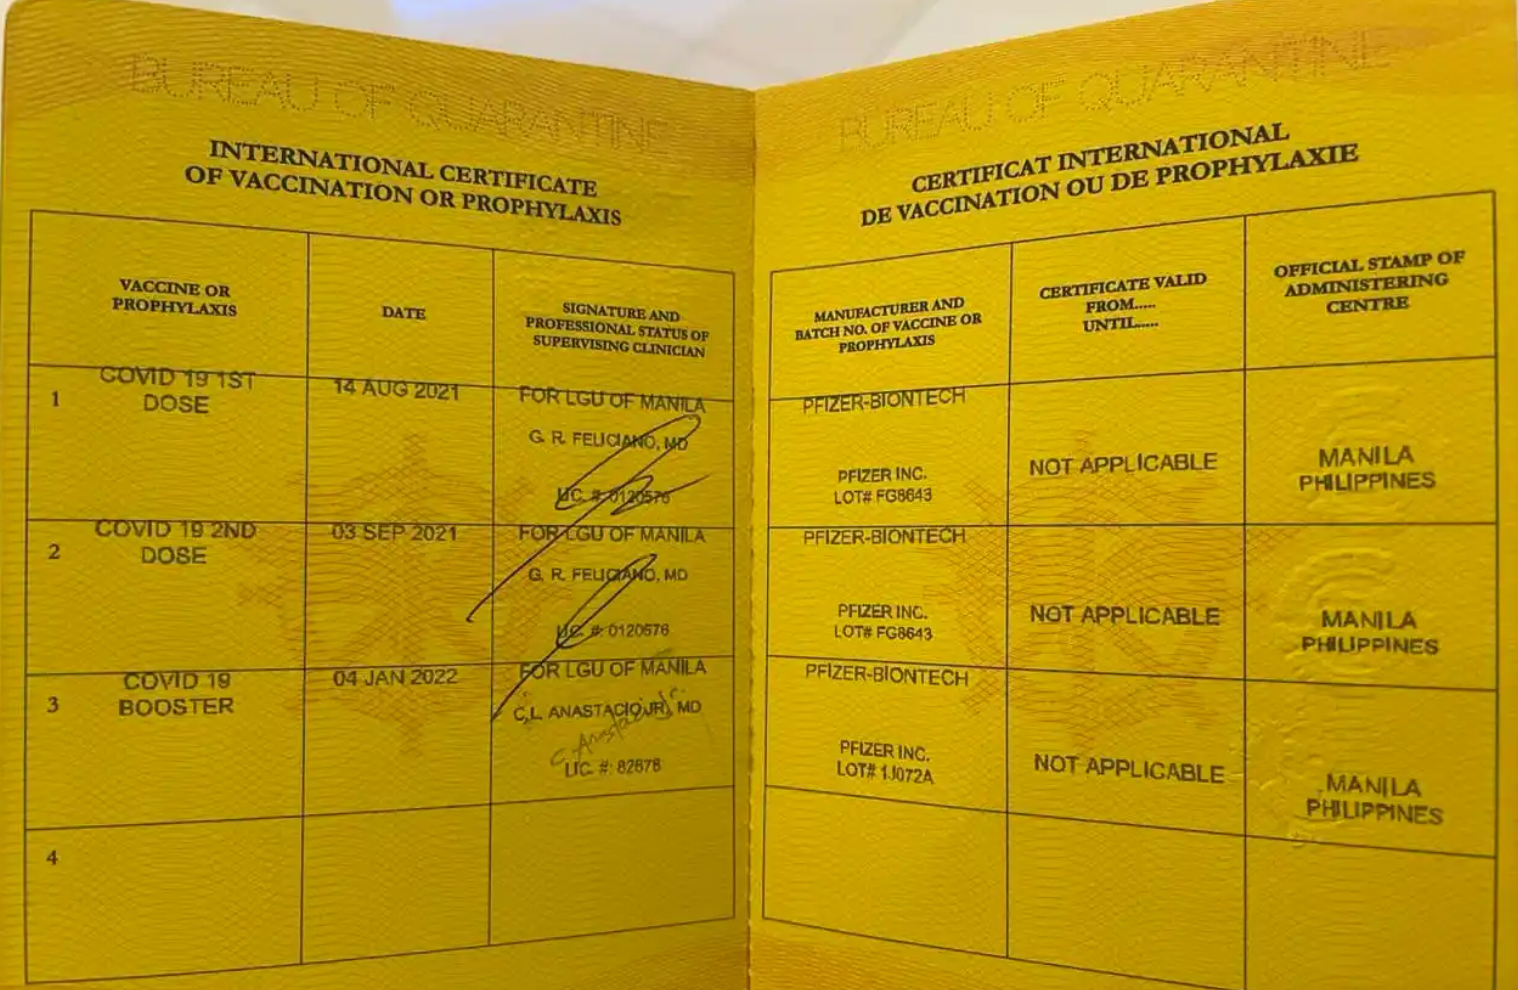 BUREAU OF QUARANTINE
INTERNATIONAL CERTIFICATE
OF VACCINATION OR PROPHYLAXIS
VACCINE OR
PROPHYLAXIS
DATE
SIGNATURE AND
PROFESSIONAL STATUS OF
SUPERVISING CLINICIAN
1
COVID 19 1ST
DOSE
14 AUG 2021
FOR LGU OF MANILA
G. R. FELICIANO, MD
LIC. #: 0120576
2
COVID 19 2ND
DOSE
03 SEP 2021
FOR LGU OF MANILA
G. R. FELICIANO, MD
LIC. #: 0120576
3
COVID 19
BOOSTER
04 JAN 2022
FOR LGU OF MANILA
C.L. ANASTACIO JR., MD
LIC. #: 82878
4
BUREAU OF QUARANTINE
CERTIFICAT INTERNATIONAL
DE VACCINATION OU DE PROPHYLAXIE
MANUFACTURER AND
BATCH NO. OF VACCINE OR
PROPHYLAXIS
CERTIFICATE VALID
FROM.....
UNTIL.....
OFFICIAL STAMP OF
ADMINISTERING
CENTRE
PFIZER-BIONTECH
PFIZER INC.
LOT# FG8643
NOT APPLICABLE
MANILA
PHILIPPINES
PFIZER-BIONTECH
PFIZER INC.
LOT# FG8643
NOT APPLICABLE
MANILA
PHILIPPINES
PFIZER-BIONTECH
PFIZER INC.
LOT# 1J072A
NOT APPLICABLE
MANILA
PHILIPPINES